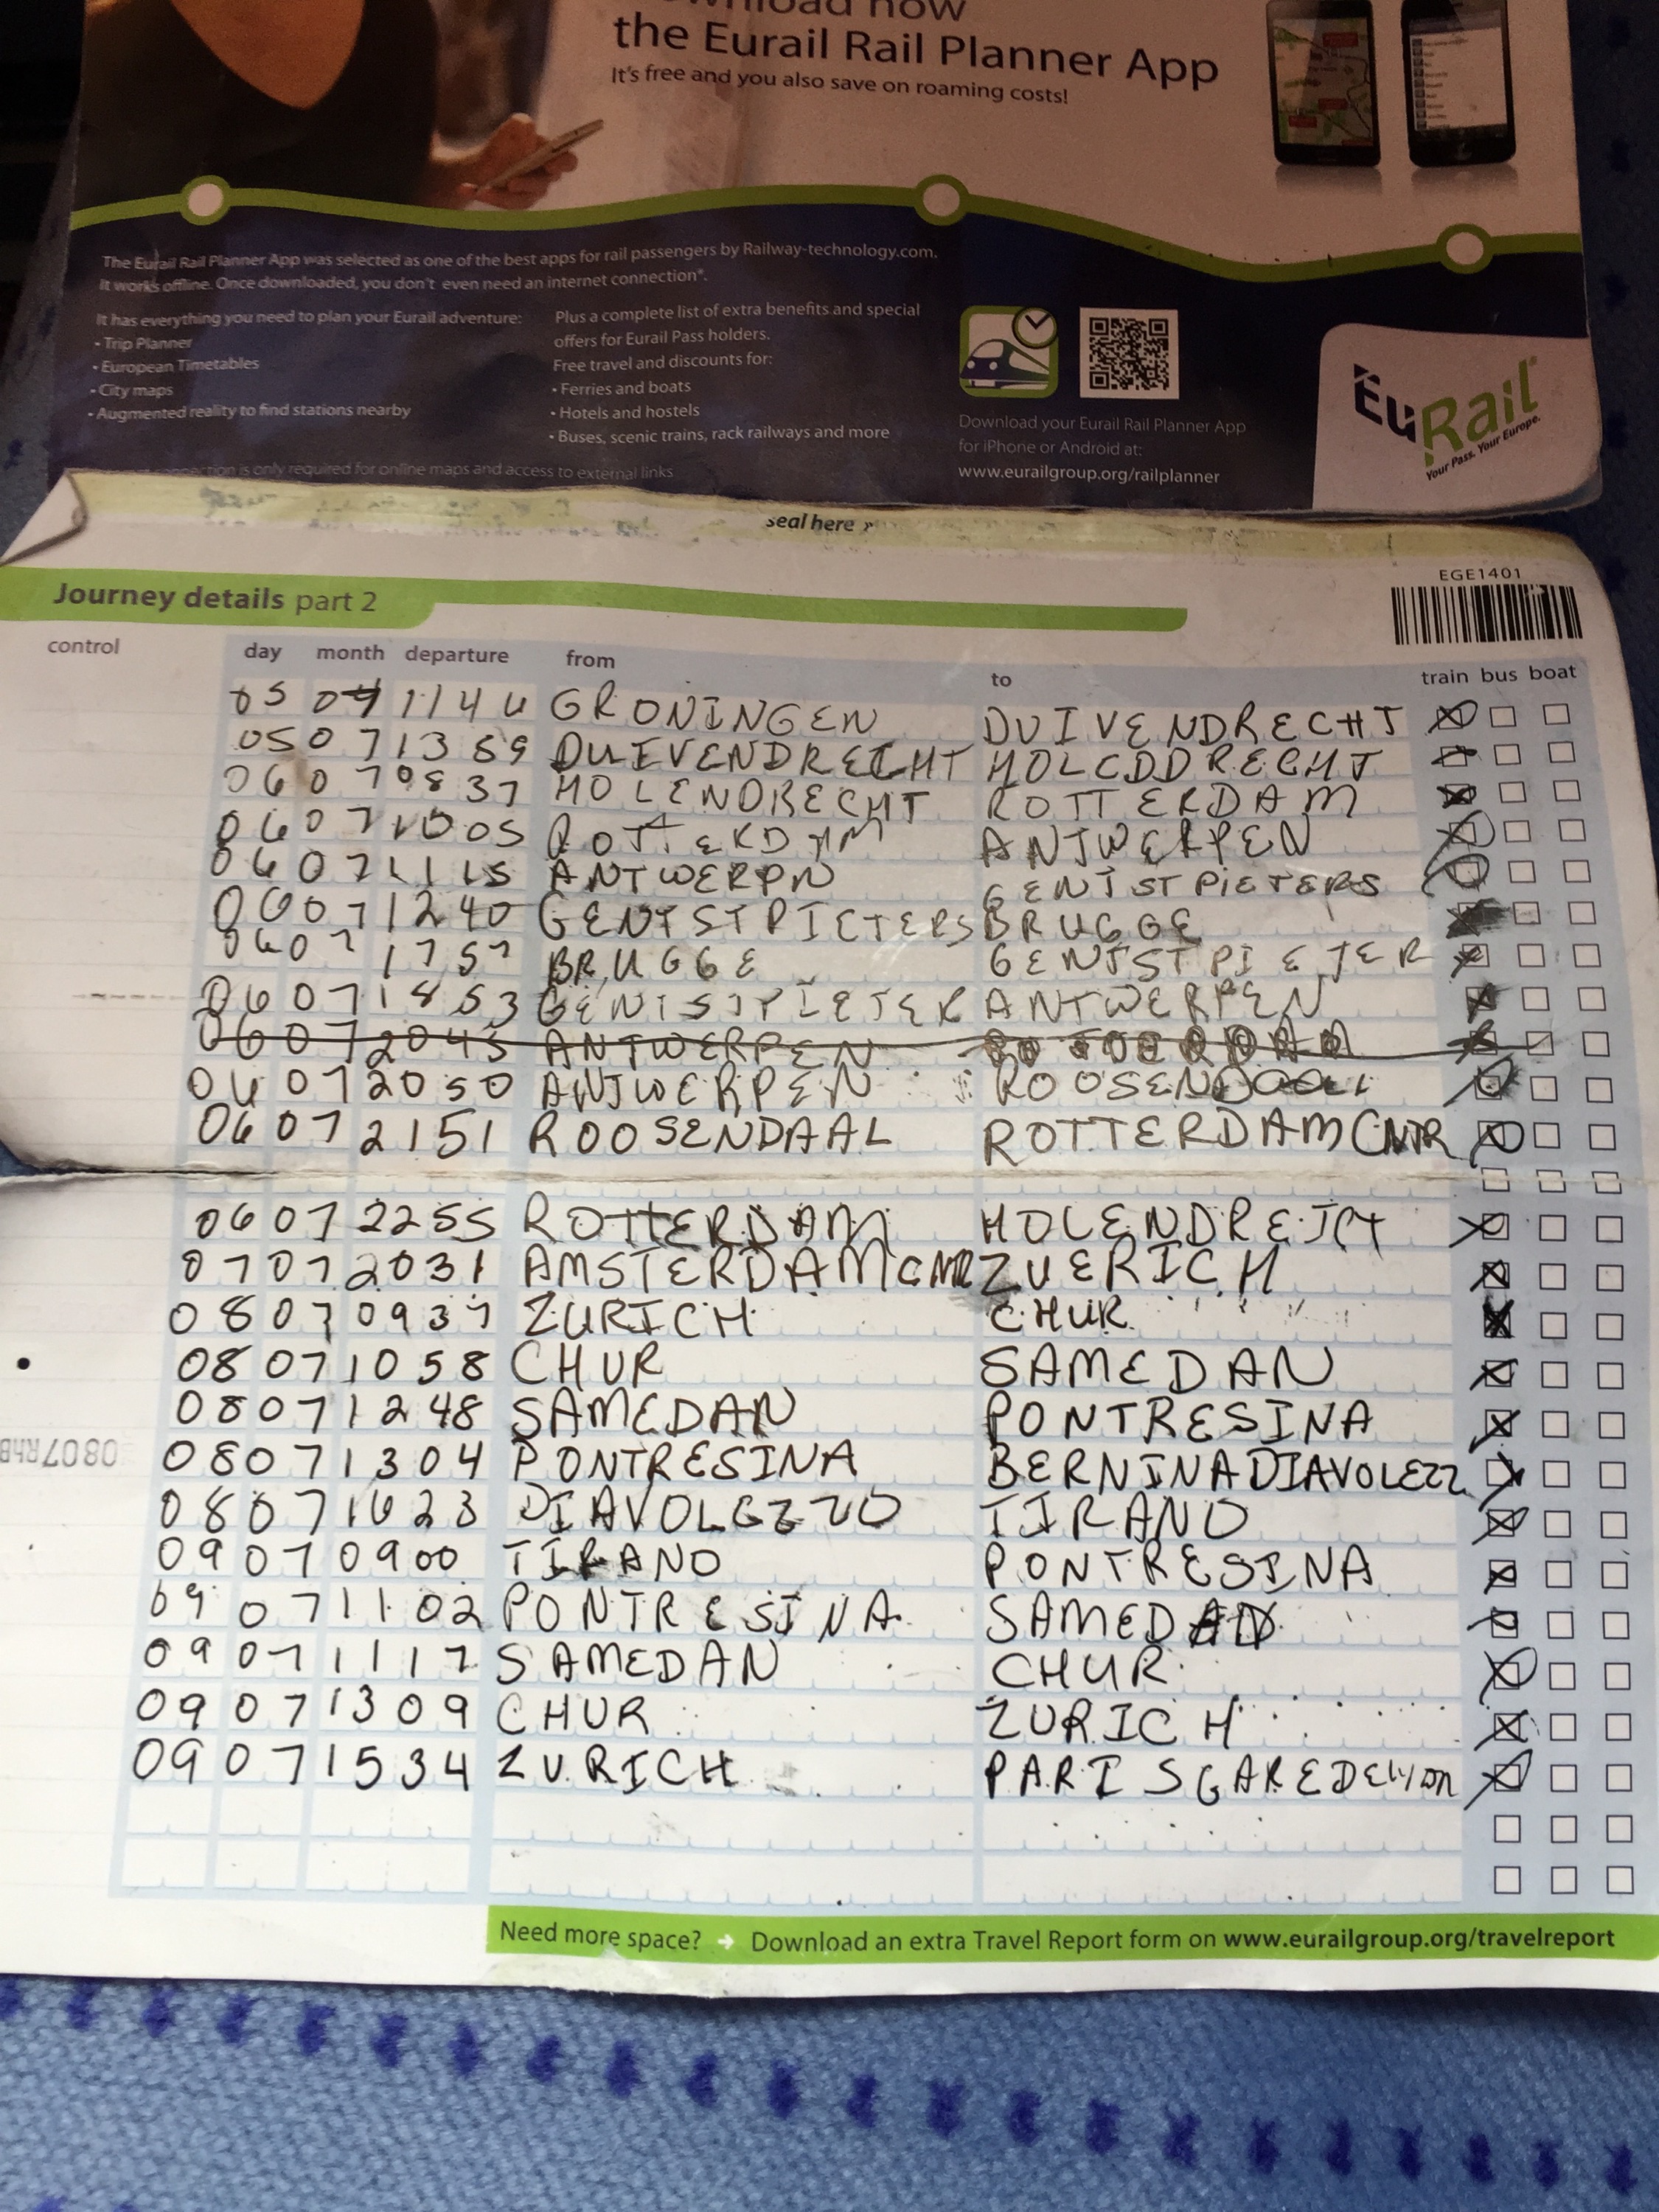 Download now
the Eurail Rail Planner App
It's free and you also save on roaming costs!
The Eurail Rail Planner App was selected as one of the best apps for rail passengers by Railway-technology.com.
It works offline. Once downloaded, you don't even need an internet connection*.
It has everything you need to plan your Eurail adventure:
• Trip Planner
• European Timetables
• City maps
• Augmented reality to find stations nearby
Plus a complete list of extra benefits and special
offers for Eurail Pass holders.
Free travel and discounts for:
• Ferries and boats
• Hotels and hostels
• Buses, scenic trains, rack railways and more
Download your Eurail Rail Planner App
for iPhone or Android at:
www.eurailgroup.org/railplanner
EuRail
Your Pass. Your Europe.
connection is only required for online maps and access to external links
seal here »
EGE1401
Journey details part 2
control day month departure from to train bus boat
05 07 1144 GRONINGEN DUIVENDRECHT
05 07 1359 DUIVENDRECHT
06 07 0837 HOLENDRECHT ROTTERDAM
06 07 1005 ROTTERDAM ANTWERPEN
06 07 1115 ANTWERPN GENTSTPIETERS
06 07 1240 GENTSTPIETERS BRUGGE
06 07 1757 BRUGGE GENTSTPIETER
06 07 1853 GENTSTPIETER ANTWERPEN
06 07 2045 ANTWERPEN
06 07 2050 ANTWERPEN ROOSENDAAL
06 07 2151 ROOSENDAAL ROTTERDAM CNTR
06 07 2255 ROTTERDAM
07 07 2031 AMSTERDAM CNTR ZUERICH
08 07 0937 ZURICH CHUR
08 07 1058 CHUR SAMEDAN
08 07 1248 SAMEDAN PONTRESINA
0807RhB
08 07 1304 PONTRESINA BERNINADIAVOLEZZ
08 07 1623 DIAVOLEZZO TIRANO
09 07 0900 TIRANO PONTRESINA
09 07 1102 PONTRESINA SAMEDAN
09 07 1117 SAMEDAN CHUR
09 07 1309 CHUR ZURICH
09 07 1534 ZURICH PARISGAREDELYON
Need more space? → Download an extra Travel Report form on www.eurailgroup.org/travelreport